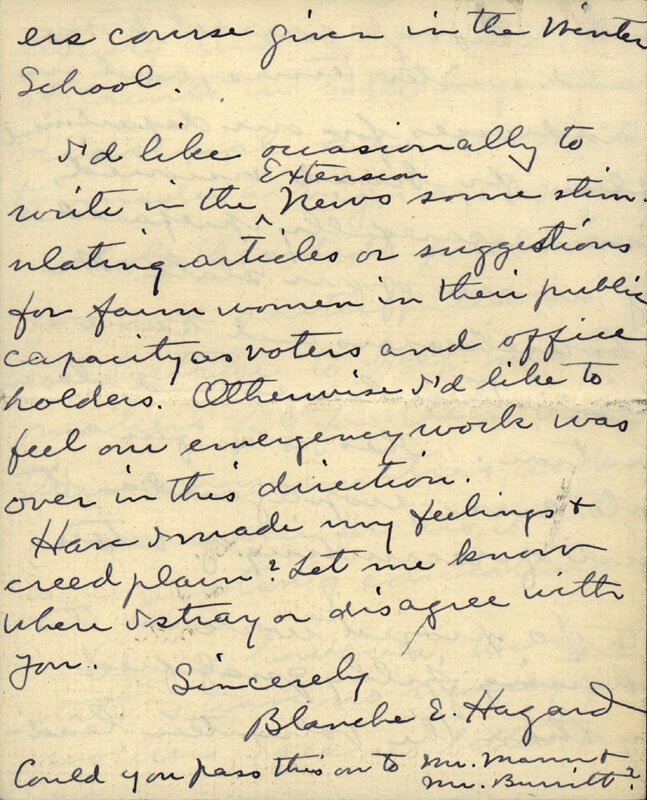 ers course given in the Winter
School.
I'd like occasionally to
Extension
write in the ^ News some stim-
ulating articles or suggestions
for farm women in their public
capacity as voters and office
holders. Otherwise I'd like to
feel our emergency work was
over in this direction.
Have I made my feelings &
creed plain? Let me know
where I stray or disagree with
you.
Sincerely
Blanche E. Hazard
Could you pass this on to Mr. Mann &
Mr. Burritt?